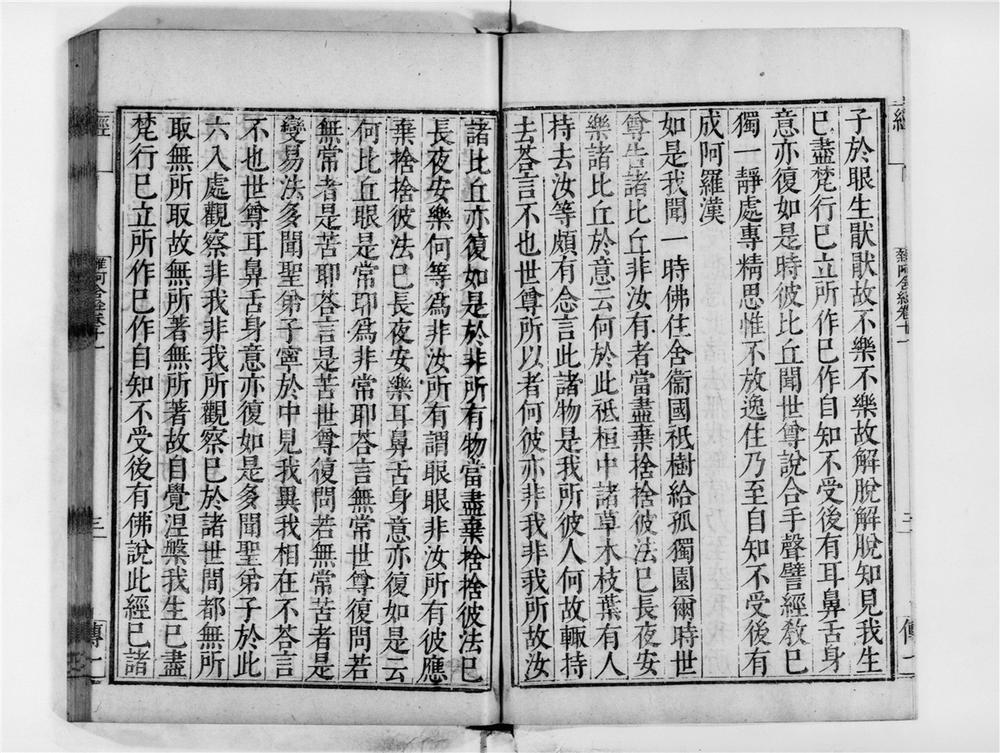 子於眼生猒猒故不樂不樂故解脫解脫知見我生
已盡梵行已立所作已作自知不受後有耳鼻舌身
意亦復如是時彼比丘聞世尊說合手聲譬經敎已
獨一靜處專精思惟不放逸住乃至自知不受後有
成阿羅漢
如是我聞一時佛住舍衞國祇樹給孤獨園爾時世
尊告諸比丘非汝有者當盡棄捨捨彼法已長夜安
樂諸比丘於意云何於此祇桓中諸草木枝葉有人
持去汝等頗有念言此諸物是我所彼人何故輙持
去荅言不也世尊所以者何彼亦非我非我所故汝
諸比丘亦復如是於非所有物當盡棄捨捨彼法已
長夜安樂何等爲非汝所有謂眼眼非汝所有彼應
棄捨捨彼法已長夜安樂耳鼻舌身意亦復如是云
何比丘眼是常耶爲非常耶荅言無常世尊復問若
無常者是苦耶荅言是苦世尊復問若無常苦者是
變易法多聞聖弟子寧於中見我異我相在不荅言
不也世尊耳鼻舌身意亦復如是多聞聖弟子於此
六入處觀察非我非我所觀察已於諸世間都無所
取無所取故無所著無所著故自覺涅槃我生已盡
梵行已立所作已作自知不受後有佛說此經已諸
經
雜阿含經卷十一
三
傳一